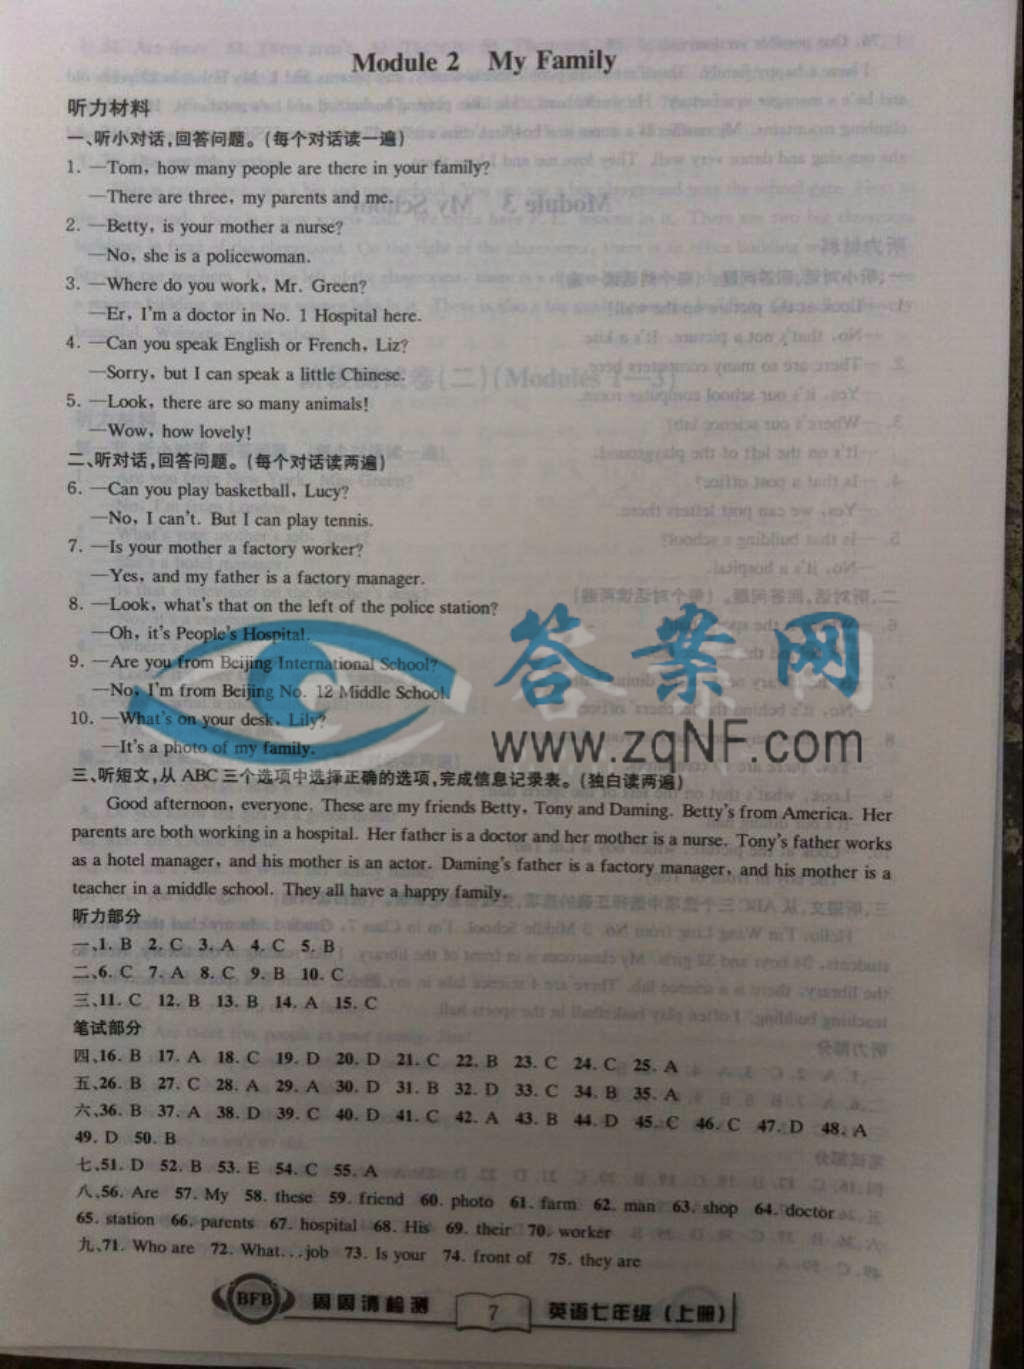 Module 2 My Family
听力材料
一、听小对话,回答问题。(每个对话读一遍)
1. —Tom, how many people are there in your family?
—There are three, my parents and me.
2. —Betty, is your mother a nurse?
—No, she is a policewoman.
3. —Where do you work, Mr. Green?
—Er, I'm a doctor in No. 1 Hospital here.
4. —Can you speak English or French, Liz?
—Sorry, but I can speak a little Chinese.
5. —Look, there are so many animals!
—Wow, how lovely!
二、听对话,回答问题。(每个对话读两遍)
6. —Can you play basketball, Lucy?
—No, I can't. But I can play tennis.
7. —Is your mother a factory worker?
—Yes, and my father is a factory manager.
8. —Look, what's that on the left of the police station?
—Oh, it's People's Hospital.
9. —Are you from Beijing International School?
—No, I'm from Beijing No. 12 Middle School.
10. —What's on your desk, Lily?
—It's a photo of my family.
答案网
www.zqNF.com
三、听短文,从 ABC 三个选项中选择正确的选项,完成信息记录表。(独白读两遍)
Good afternoon, everyone. These are my friends Betty, Tony and Daming. Betty's from America. Her
parents are both working in a hospital. Her father is a doctor and her mother is a nurse. Tony's father works
as a hotel manager, and his mother is an actor. Daming's father is a factory manager, and his mother is a
teacher in a middle school. They all have a happy family.
听力部分
一、1. B 2. C 3. A 4. C 5. B
二、6. C 7. A 8. C 9. B 10. C
三、11. C 12. B 13. B 14. A 15. C
笔试部分
四、16. B 17. A 18. C 19. D 20. D 21. C 22. B 23. C 24. C 25. A
五、26. B 27. C 28. A 29. A 30. D 31. B 32. D 33. C 34. B 35. A
六、36. B 37. A 38. D 39. C 40. D 41. C 42. A 43. B 44. D 45. C 46. C 47. D 48. A
49. D 50. B
七、51. D 52. B 53. E 54. C 55. A
八、56. Are 57. My 58. these 59. friend 60. photo 61. farm 62. man 63. shop 64. doctor
65. station 66. parents 67. hospital 68. His 69. their 70. worker
九、71. Who are 72. What...job 73. Is your 74. front of 75. they are
BFB 周周清检测 7 英语七年级(上册)